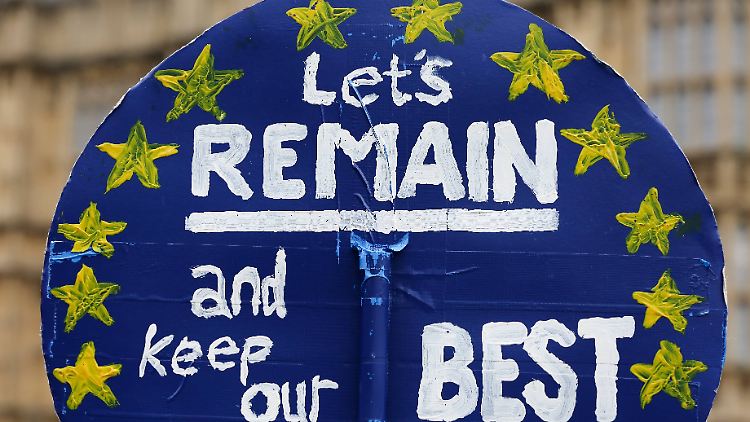 Let's
REMAIN
and
keep
our BEST